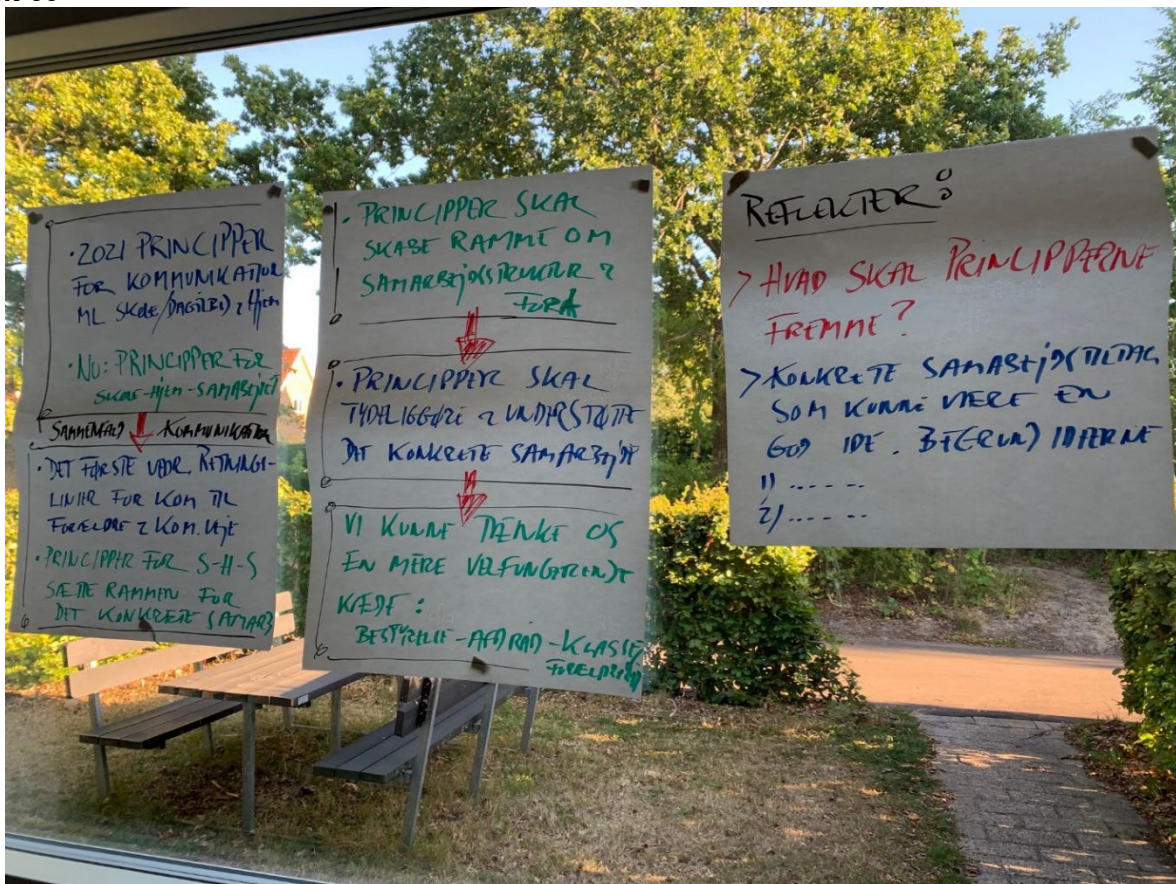 · 2021 PRINCIPPER
FOR KOMMUNIKATION
ML SKOLE/DAGTILBUD & HJEM
· NU: PRINCIPPER FOR
SKOLE-HJEM-SAMARBEJDET
SAMMENFALD KOMMUNIKATION
· DET FØRSTE VEDR. RETNINGS-
LINIER FOR KOM TIL
FORÆLDRE & KOM.VEJE
· PRINCIPPER FOR S-H-S
SÆTTE RAMMEN FOR
DET KONKRETE SAMARB
· PRINCIPPER SKAL
SKABE RAMME OM
SAMARBEJDSSTRUKTUR &
· PRINCIPPER SKAL
TYDELIGGØRE & UNDERSTØTTE
DET KONKRETE SAMARBEJDE
VI KUNNE TÆNKE OS
EN MERE VELFUNGERENDE
KÆDE:
BESTYRELSE-AFD RÅD-KLASSE
FORÆLDRERÅD
REFLEKTER:
> HVAD SKAL PRINCIPPERNE
FREMME?
> KONKRETE SAMARBEJDSTILTAG
SOM KUNNE VÆRE EN
GOD IDE. BEGRUND IDEERNE
1) ......
2) ......